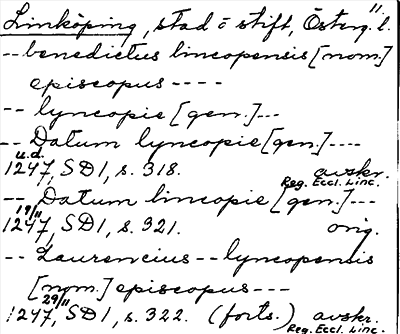 Linköping, stad o stift, Österg. l. 11.
-- benedictus lincopensis [nom.]
episcopus ----
-- lyncopie [gen.] ---
-- Datum lyncopie [gen.] ---
u.d.
1247, SD1, s. 318. avskr.
Reg. Eccl. Linc.
-- Datum lincopie [gen.] ---
19/11
1247, SD1, s. 321. orig.
-- Laurencius -- lyncopensis
[nom.] episcopus ---
29/11
1247, SD1, s. 322. (forts.) avskr.
Reg. Eccl. Linc.